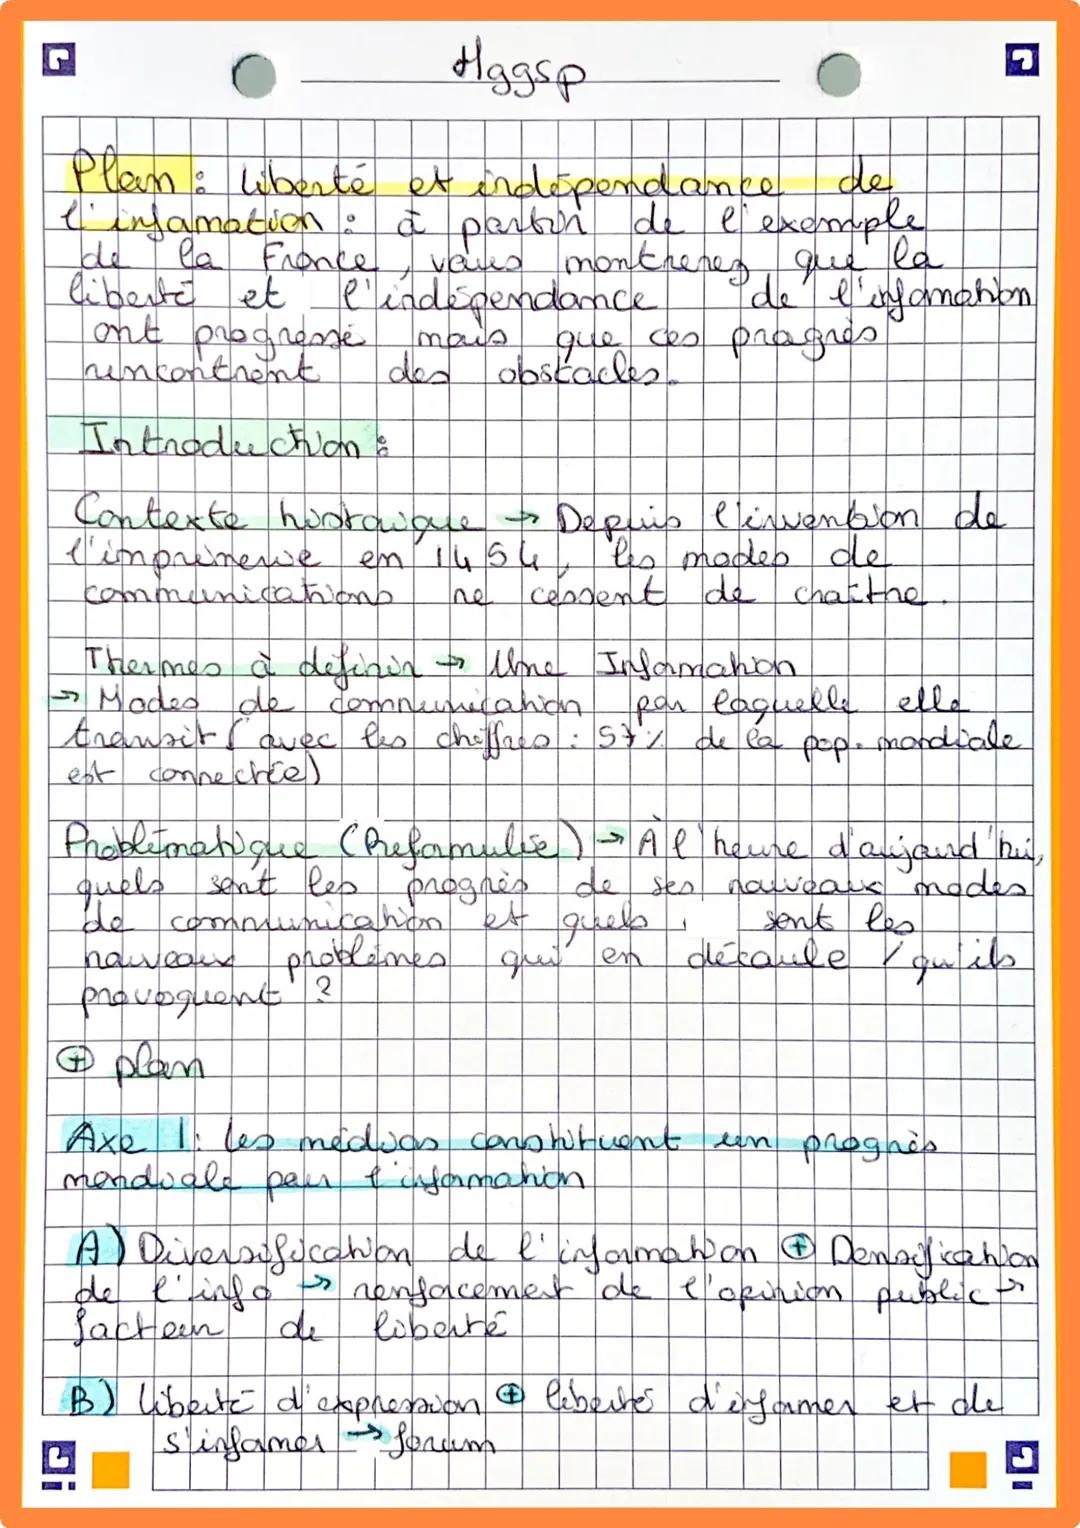 Hggsp
Plan : liberté et indépendance de
l'information : à partir de l'exemple
de la France, vous montrerez que la
liberté et l'indépendance de l'information
ont progressé mais que ces progrès
rencontrent des obstacles.
Introduction :
Contexte historique → Depuis l'invention de
l'imprimerie en 1454, les modes de
communications ne cessent de croître.
Thermes à définir → Une Information
→ Modes de communication par laquelle elle
transit (avec les chiffres : 57% de la pop. mondiale
est connectée)
Problématique (Reformulée) → À l'heure d'aujourd'hui,
quels sont les progrès de ses nouveaux modes
de communication et quels sont les
nouveaux problèmes qui en découle / qu'ils
provoquent ?
⊕ plan
Axe 1 : les médias constituent un progrès
mondiale pour l'information
A) Diversification de l'information ⊕ Densification
de l'info → renforcement de l'opinion public →
facteur de liberté
B) liberté d'expression ⊕ libertés d'informer et de
s'informer → forum